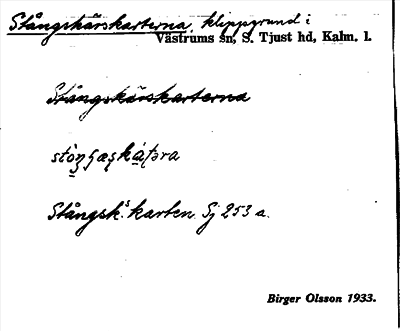 Stångskärskarterna, klippgrund i
Västrums sn, S. Tjust hd, Kalm. l.
Stångskärskarterna
Stångsk:s karten. Sj 253 a.
Birger Olsson 1933.